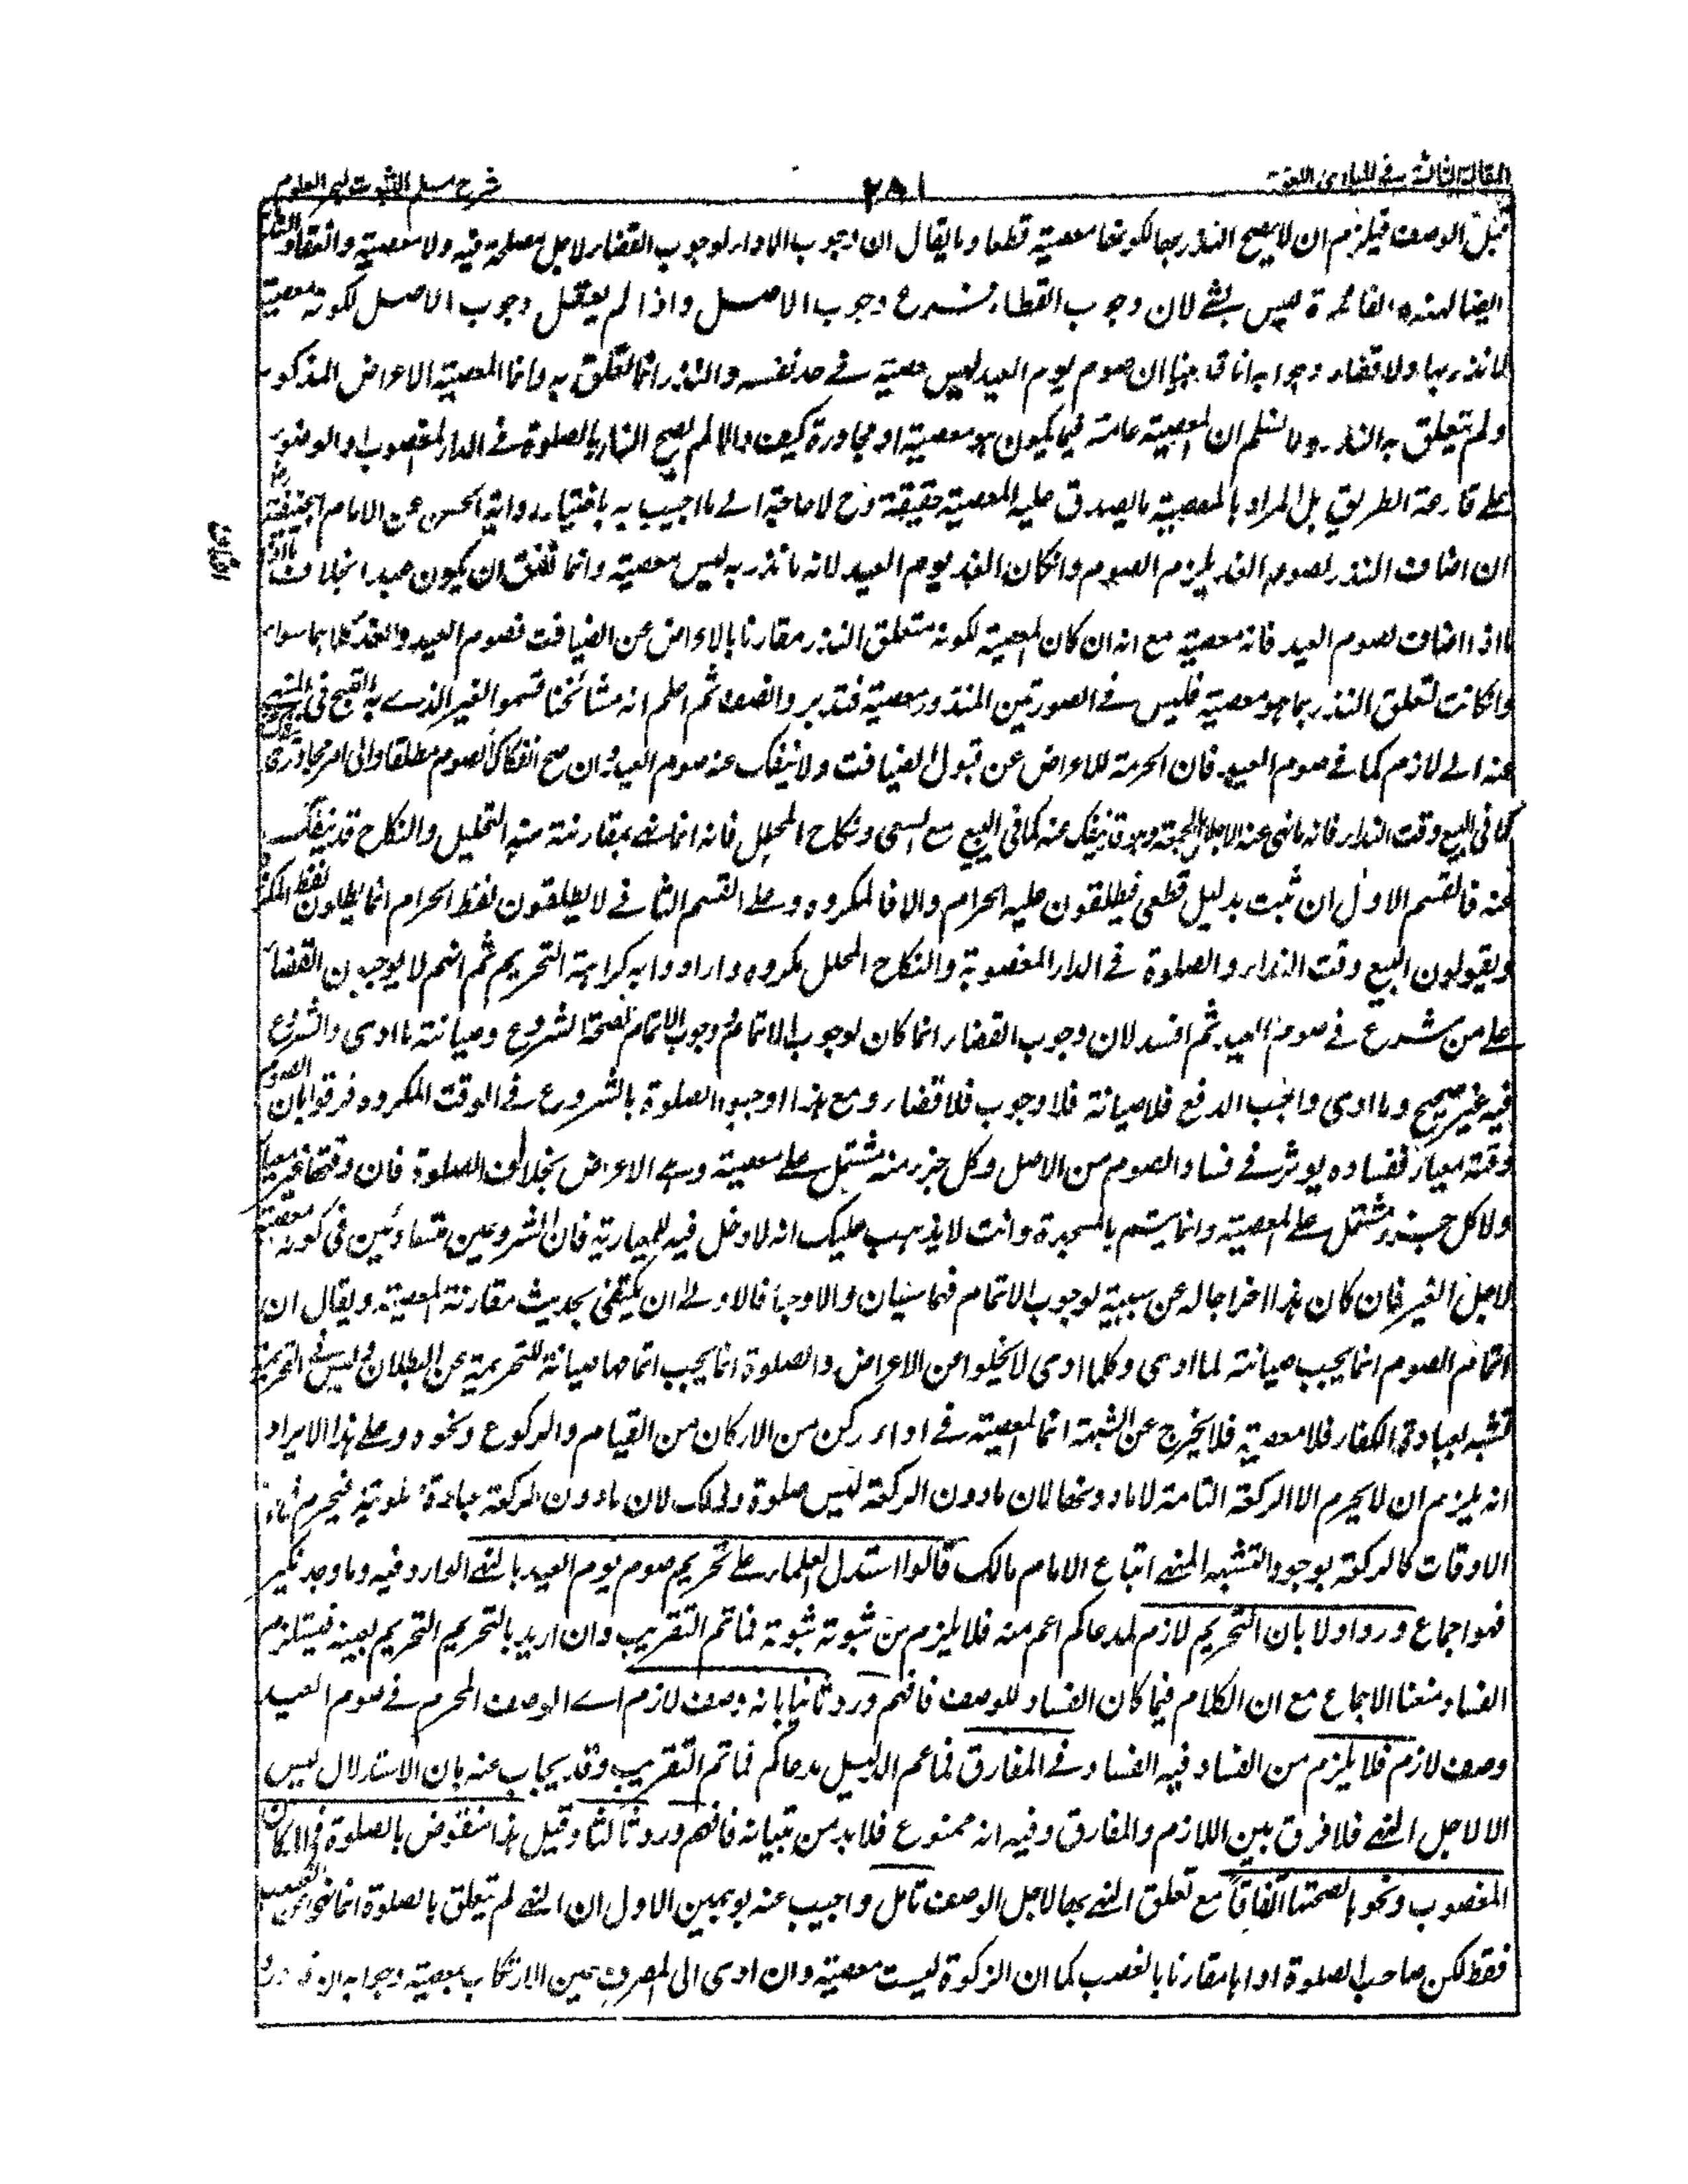 المقالة الثالثة في المبادي اللغوية ٢٨١ شرح مسلم الثبوت لبحر العلوم
قبل الوصف فيلزم ان لا يصح النذر بها لكونها معصية قطعا وما يقال ان وجوب الاداء لوجوب القضاء لاجل مصلحة فيه ولا معصية وانعقاد النذر
ايضا لهذه الفائدة ليس بشئ لان وجوب القضاء فرع وجوب الاصل واذا لم يعقل وجوب الاصل لكونه معصية
لا نذر بها ولا قضاء وجوابه انا قد بينا ان صوم يوم العيد ليس معصية في حد نفسه والنذر انما تعلق به وانما المعصية الاعراض المذكور
ولم يتعلق به النذر ولا نسلم ان المعصية عامة فيما يكون هو معصية او مجاورة كيف والا لم يصح النذر بالصلوة في الدار المغصوب او الوضوء
على قارعة الطريق بل المراد بالمعصية ما يصدق عليه المعصية حقيقة وح لا حاجة الى ما اجيب به باختيار رواية الحسن عن الامام ابي حنيفة
ان اضاف النذر لصوم الغد يلزم الصوم وان كان الغد يوم العيد لانه ما نذر به ليس معصية وانما اتفق ان يكون عيدا بخلاف
ما اذا اضاف لصوم العيد فانه معصية مع انه ان كان المعصية لكونه متعلق النذر مقارنا بالاعراض عن الضيافة فصوم العيد والغد كلاهما سواء
وان كانت لتعلق النذر بما هو معصية فليس في الصورتين المنذور معصية فتدبر وانصف ثم اعلم انه مشائخنا قسموا الغير الذي به القبح في المنهي
عنه الى لازم كما في صوم العيد فان الحرمة للاعراض عن قبول الضيافة ولا ينفك عنه صوم العيد وان صح انفكاك الصوم مطلقا والى امر مجاور
كما في البيع وقت النداء فانه ما نهى عنه الا لاجل الجمعة وهو قد ينفك عنه كما في البيع مع السعي ونكاح المحلل فانه انما نهي بمقارنة نية التحليل والنكاح قد ينفك
عنه فالقسم الاول ان ثبت بدليل قطعي فيطلقون عليه الحرام والا فالمكروه وعلى القسم الثاني لا يطلقون لفظ الحرام انما يطلقون لفظ المكروه
ويقولون البيع وقت النداء والصلوة في الدار المغصوبة والنكاح المحلل مكروه وارادوا به كراهة التحريم ثم انهم لا يوجبون القضاء
على من شرع في صوم العيد ثم افسد لان وجوب القضاء انما كان لوجوب الاتمام ووجوب الاتمام لصحة الشروع وصيانة ما ادى والشروع
فيه غير صحيح وما ادى واجب الدفع فلا صيانة فلا وجوب فلا قضاء ومع هذا اوجبوا الصلوة بالشروع في الوقت المكروه وفرقوا بان الصوم
وقته معيار ففساده يوثر في فساد الصوم من الاصل وكل جزء منه مشتمل على معصية وهي الاعراض بخلاف الصلوة فان وقتها غير معيار
ولا كل جزء مشتمل على المعصية وانما يتم بالسجدة وانت لا يذهب عليك انه لا دخل فيه للمعيارية فان الشروعين متساويين في كونه معصية
لاجل الغير فان كان هذا اخراجا له عن سببية لوجوب الاتمام فهما سيان والا وجبا فالاولى ان يكتفى بحديث مقارنة المعصية ويقال ان
اتمام الصوم انما يجب صيانة لما ادى وكلما ادى لا يخلوا من الاعراض والصلوة انما يجب اتمامها صيانة للتحريمة عن البطلان وليس في التحريمة
تشبه بعبادة الكفار فلا معصية فلا يخرج عن الشبهة انما المعصية في اداء ركن من الاركان من القيام والركوع ونحوه وعلى هذا الايراد
انه يلزم ان لا يحرم الا الركعة التامة لا ما دونها لان ما دون الركعة ليس صلوة وذلك لان ما دون الركعة عبادة صلوتية فيحرم في هذه
الاوقات كالركعة بوجود التشبه المنهي اتباع الامام مالك قالوا استدل العلماء على تحريم صوم يوم العيد بالنهي الوارد فيه وما وجد نكير
فهو اجماع ورد اولا بان التحريم لازم لمدعاكم اعم منه فلا يلزم من ثبوته ثبوته فما تم التقريب وان اريد بالتحريم التحريم لعينه فيستلزم
الفساد منعنا الاجماع مع ان الكلام فيما كان الفساد للوصف فافهم ورد ثانيا بانه وصف لازم اے الوصف المحرم في صوم العيد
وصف لازم فلا يلزم من الفساد فيه الفساد في المفارق فما عم الدليل مدعاكم فما تم التقريب وقد يجاب عنه بان الاستدلال ليس
الا لاجل النهي فلا فرق بين اللازم والمفارق وفيه انه ممنوع فلا بد من تبيانه فافهم ورد ثالثا وقيل هذا منقوض بالصلوة في المكان
المغصوب ونحوها لصحتها اتفاقا مع تعلق النهي بها لاجل الوصف تامل واجيب عنه بوجهين الاول ان النهي لم يتعلق بالصلوة انما نهى عن الغصب
فقط لكن صاحب الصلوة اداها مقارنا بالغصب كما ان الزكوة ليست معصية وان ادى الى المصرف حين الارتكاب بمعصية وجوابه ان